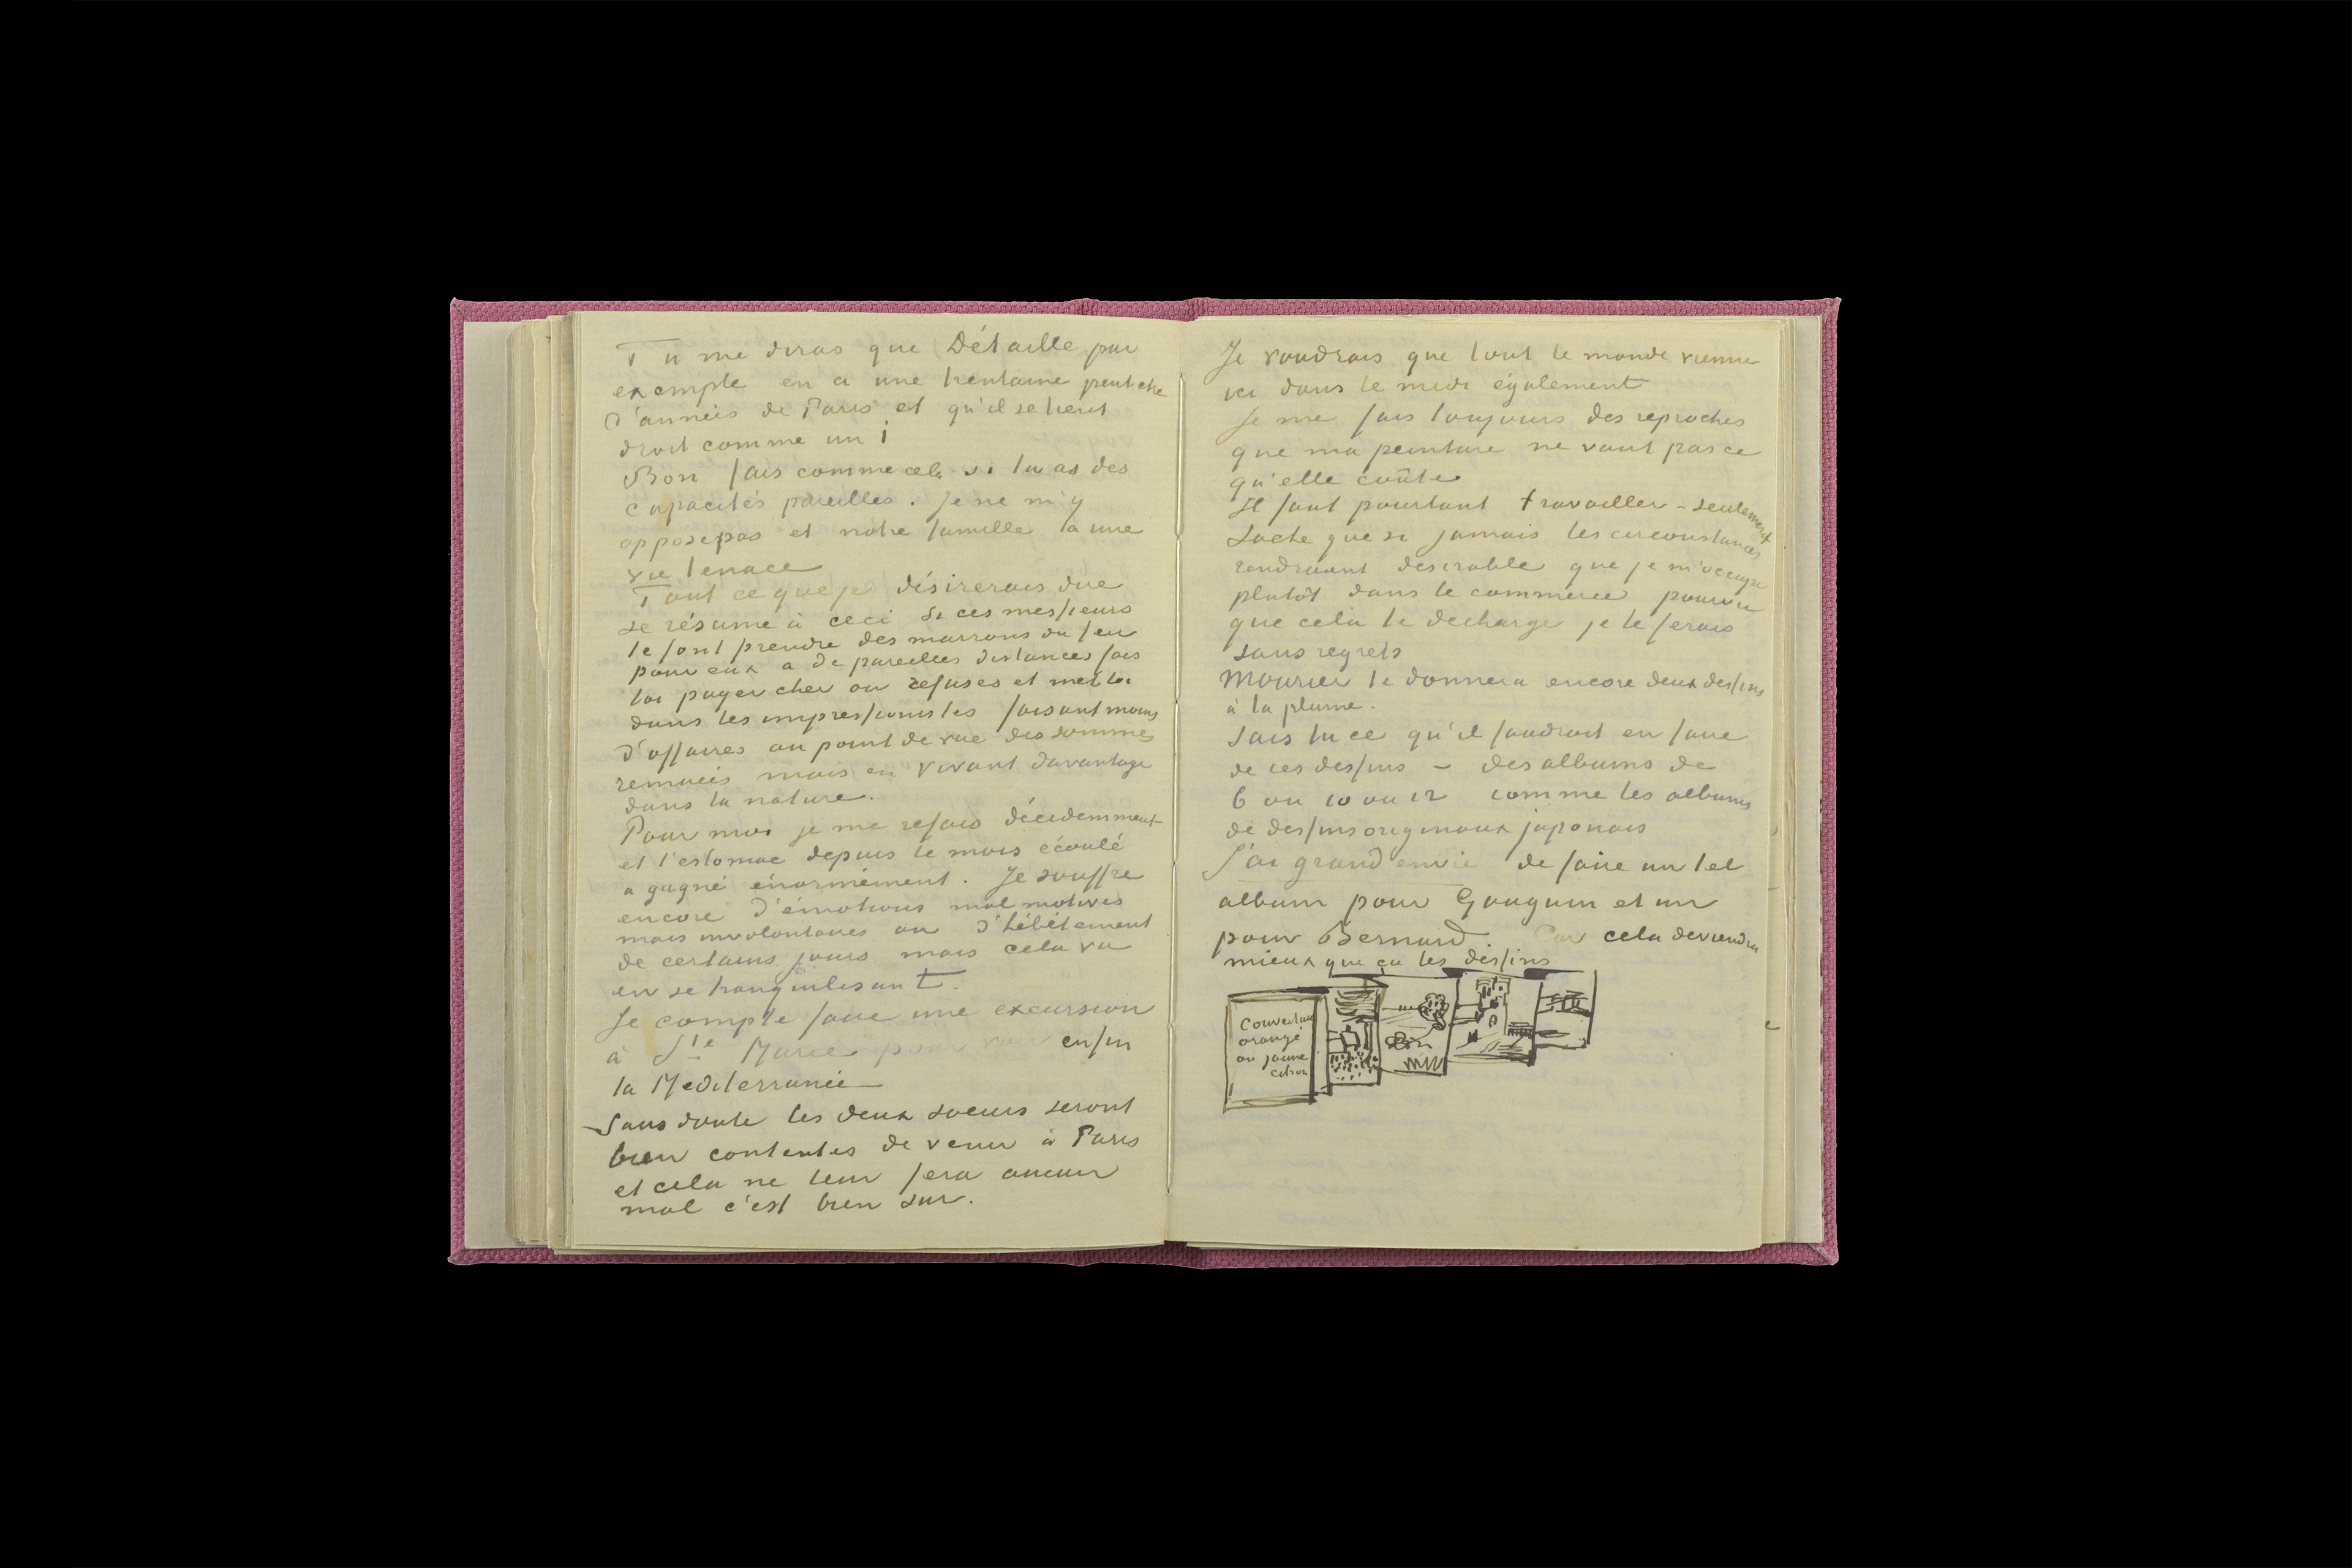 Tu me diras que Détaille par
exemple en a une trentaine peut etre
d'années de Paris et qu'il se tient
droit comme un i
Bon fais comme cela si tu as des
capacités pareilles. Je ne m'y
oppose pas et notre famille a une
vie tenace
Tout ce que je désirerais dire
se résume à ceci Si ces messieurs
te font prendre des marrons du feu
pour eux a de pareilles distances fais
toi payer cher ou refuses et mets toi
dans les impressionistes faisant moins
d'affaires au point de vue des sommes
remuées mais en vivant davantage
dans la nature.
Pour moi je me refais décidemment
et l'estomac depuis le mois écoulé
a gagné énormément. Je souffre
encore d'émotions mal motivées
mais involontaires ou d'hébêtement
de certains jours mais cela va
en se tranquilisant.
Je compte faire une excursion
à Ste Marie pour voir enfin
la Mediterranée
Sans doute les deux soeurs seront
bien contentes de venir à Paris
et cela ne leur fera aucun
mal c'est bien sur.
Je voudrais que tout le monde vienne
ici dans le midi également
Je me fais toujours des reproches
que ma peinture ne vaut pas ce
qu'elle coûte
Il faut pourtant travailler - seulement
sache que si jamais les circonstances
rendraient desirable que je m'occupe
plutôt dans le commerce pourvu
que cela te decharge je le ferais
sans regrets
Mourier te donnera encore deux dessins
à la plume.
Sais tu ce qu'il faudrait en faire
de ces dessins – des albums de
6 ou 10 ou 12 comme les albums
de dessins originaux japonais
J'ai grand envie de faire un tel
album pour Gauguin et un
pour Bernard. Car cela deviendra
mieux que ça les dessins
Couverture
orangé
ou jaune
citron